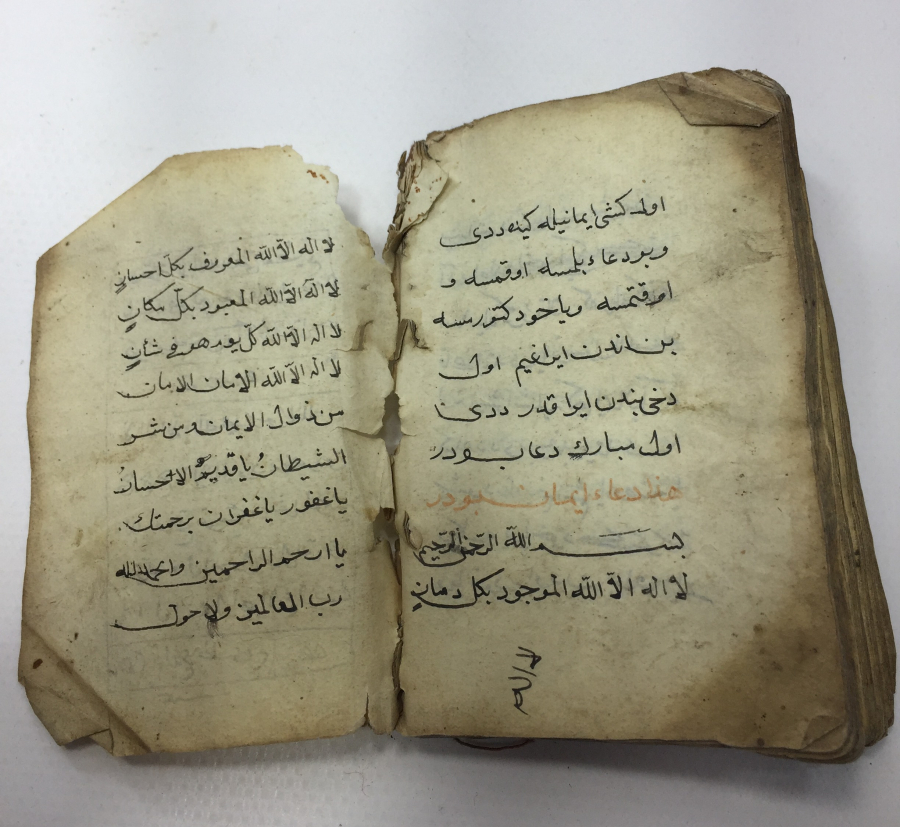 اول كشى ايمانيله كيده ددى
و بو دعاء بلمسه اوقمسه و
اوقتمسه ويا خود كتورمسه
بن اندن ايراغيم اول
دخى بندن ايرا قدر ددى
اول مبارك دعا بودر
هذا دعاء ايمان بودر
بسم الله الرحمن الرحيم
لا اله الا الله الموجود بكل زمان
لا اله
لا اله الا الله المعروف بكل احسان
لا اله الا الله المعبود بكل مكان
لا اله الا الله كل يوم هو في شأن
لا اله الا الله الامان الامان
من زوال الايمان ومن شر
الشيطان يا قديم الاحسان
يا غفور يا غفران برحمتك
يا ارحم الراحمين والحمد لله
رب العالمين ولا حول